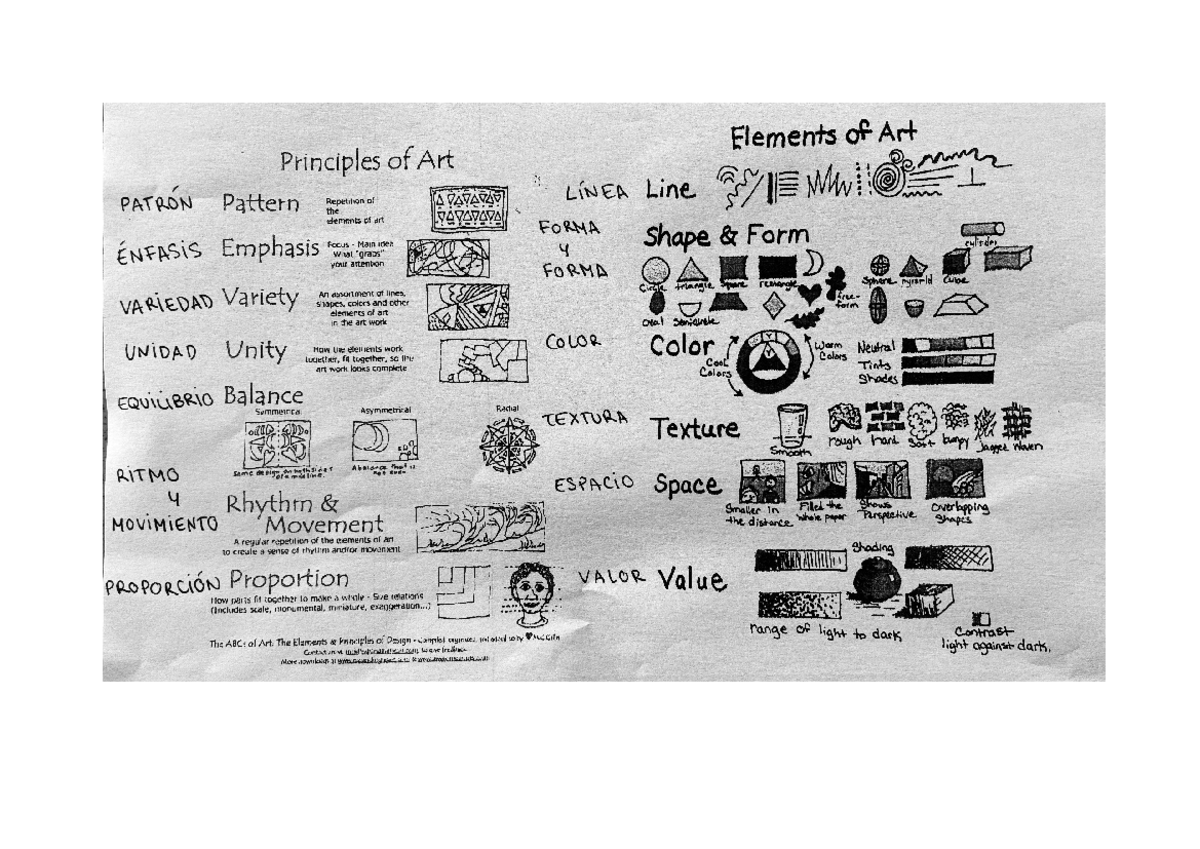 Principles of Art
PATRÓN Pattern
Repetition of
the
elements of art
ÉNFASIS Emphasis
Focus - Main idea
What "grabs"
your attention
VARIEDAD Variety
An assortment of lines,
shapes, colors and other
elements of art
in the art work
UNIDAD Unity
How the elements work
together, fit together, so the
art work looks complete
EQUILIBRIO Balance
Symmetrical Asymmetrical Radial
Same design on both sides
of a midline.
RITMO
Y
MOVIMIENTO
Rhythm &
Movement
A regular repetition of the elements of art
to create a sense of rhythm and/or movement
PROPORCIÓN Proportion
How parts fit together to make a whole - Size relations
(Includes scale, monumental, miniature, exaggeration...)
The ABCs of Art: The Elements & Principles of Design -
Elements of Art
LÍNEA Line
FORMA
Y
FORMA
Shape & Form
Circle triangle square rectangle
Oval Semicircle
free-
form
cylinder
Sphere pyramid Cube
COLOR Color
Cool
Colors
Warm
Colors
Y
Neutral
Tints
Shades
TEXTURA Texture
Smooth rough hard Soft bumpy Jagged Woven
ESPACIO Space
Smaller in
the distance
Filled the
whole paper
Shows
Perspective
Overlapping
Shapes
VALOR Value
Shading
range of light to dark
Contrast
light against dark.